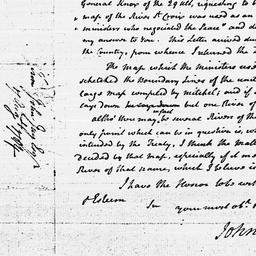 General Knox of the 29th, requesting to
map of the River St. Croix was used as an
ministers who negotiated the Peace" and d
my answer to You. This Letter arrived dur
the Country; from whence I returned the
The map, which the Ministers
sketched the Boundary Lines of the unit
copy compiled by Mitchel; and if
lays down but one River of
altho' there may, in fact be several Rivers of th
only point which can be in question is, wh
intended by the Treaty, I think the matt
decided by that map, especially if it
River of that name, which I believe is
I have the Honor to be with
& Esteem Sir
your most ob.t
John
From John Jay Esqr.